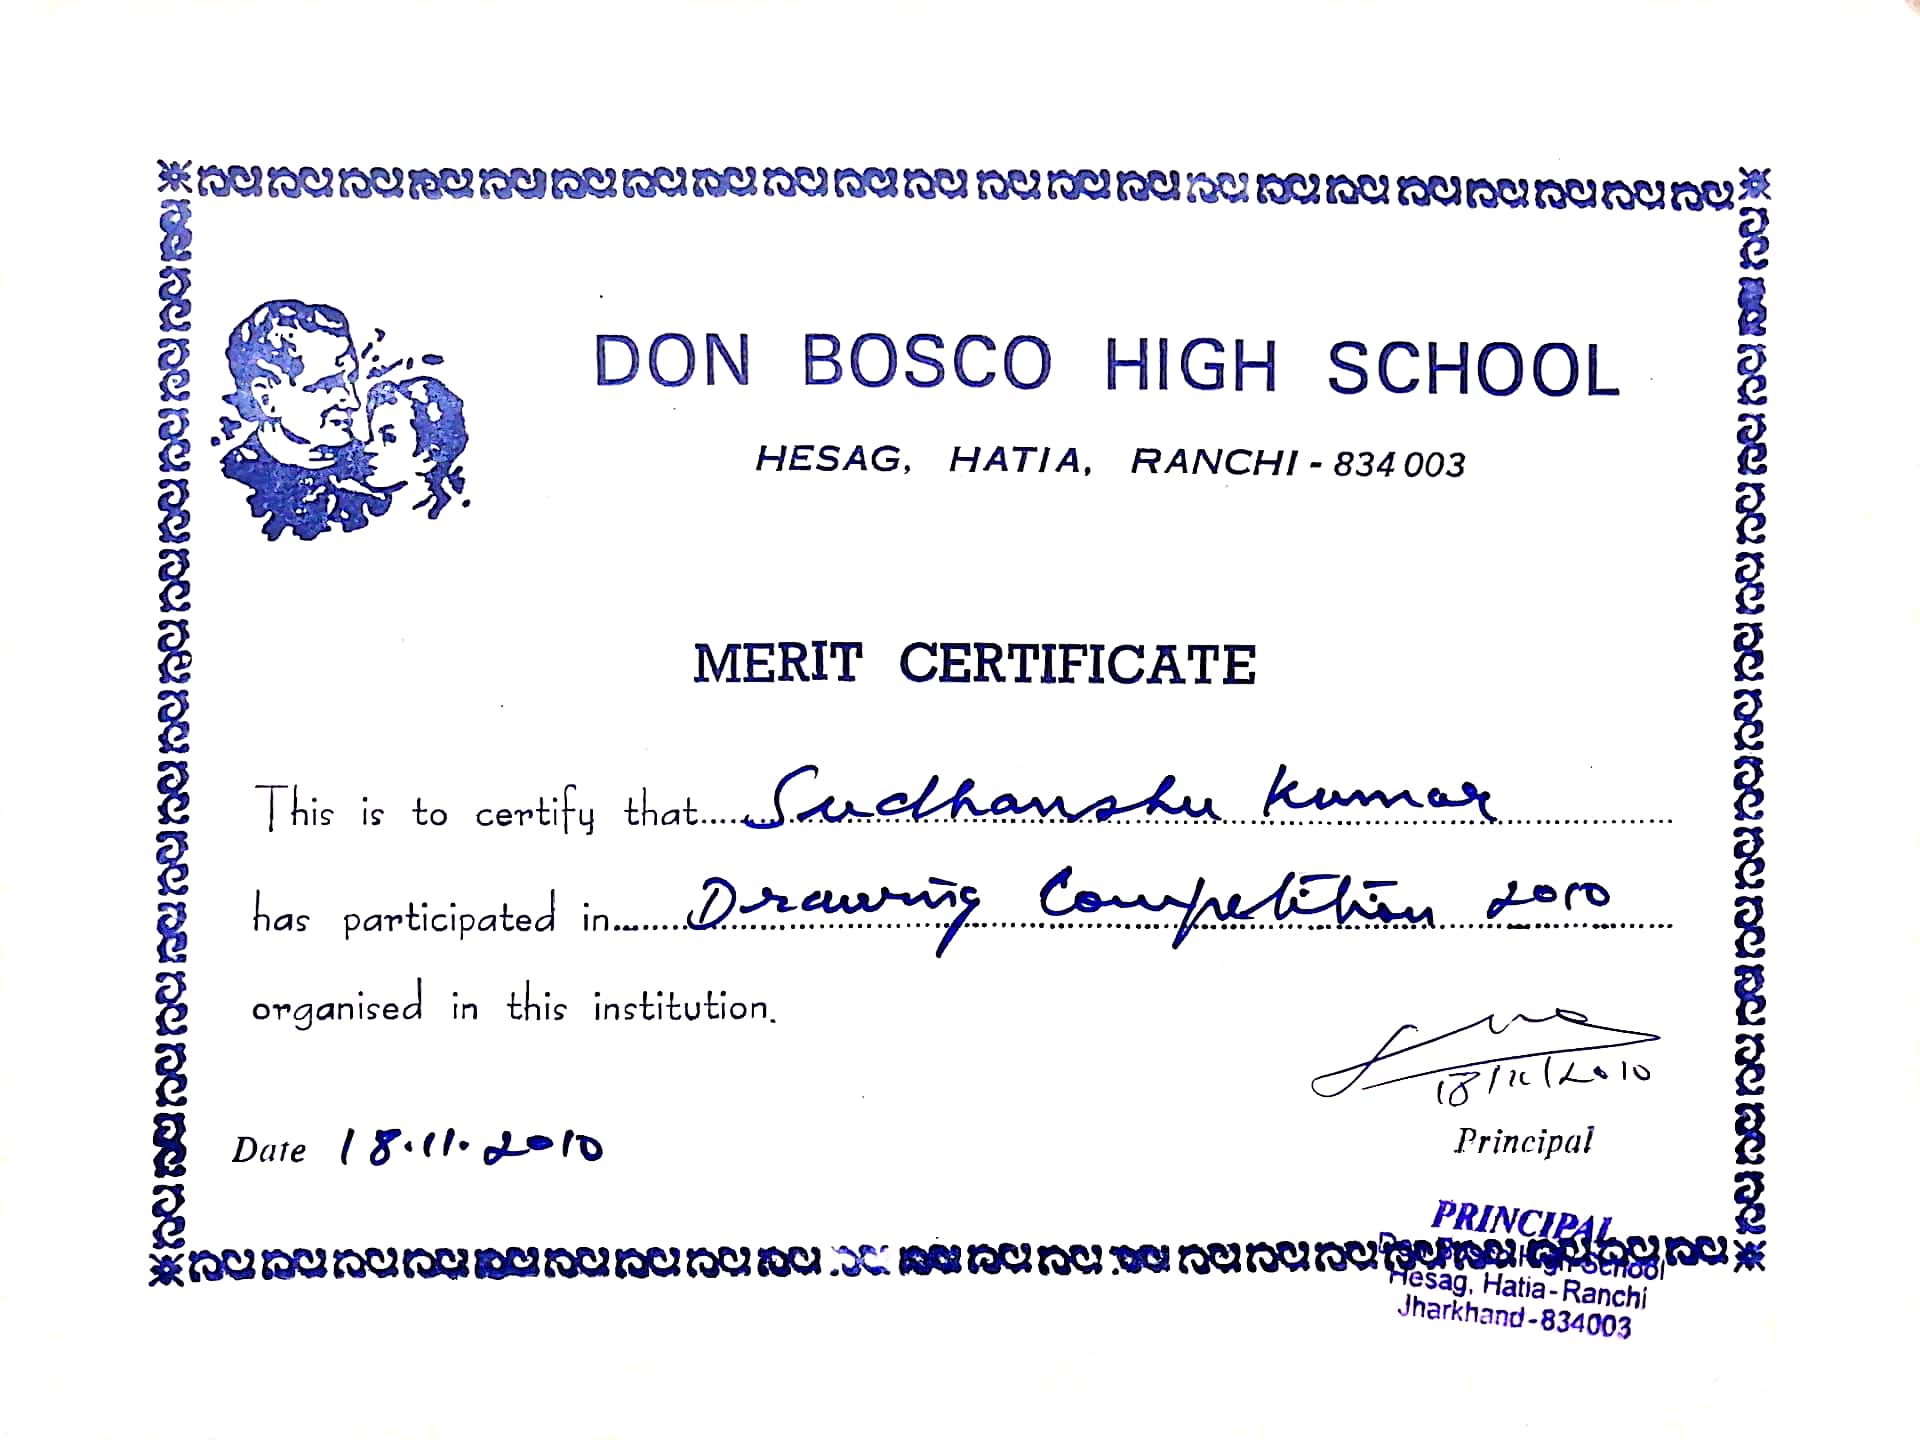 DON BOSCO HIGH SCHOOL
HESAG, HATIA, RANCHI - 834 003
MERIT CERTIFICATE
This is to certify that.....Sudhanshu Kumar
has participated in.......Drawing Competition 2010
organised in this institution.
18/11/2010
Date 18.11.2010
Principal
PRINCIPAL
Don Bosco High School
Hesag, Hatia-Ranchi
Jharkhand-834003